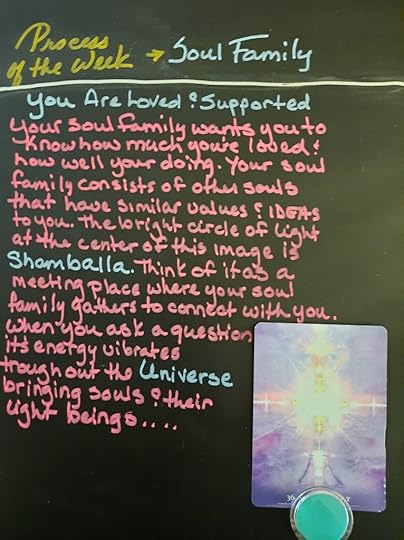 Process
of the Week → Soul Family
You Are Loved & Supported
Your Soul Family wants you to
know how much you're loved &
how well your doing. Your soul
family consists of other souls
that have similar values & IDEAS
to you. The bright circle of light
at the center of this image is
Shamballa. Think of it as a
meeting place where your soul
family gathers to connect with you.
When you ask a question
its energy vibrates
troughout the Universe
bringing souls & their
light beings....
36
Y